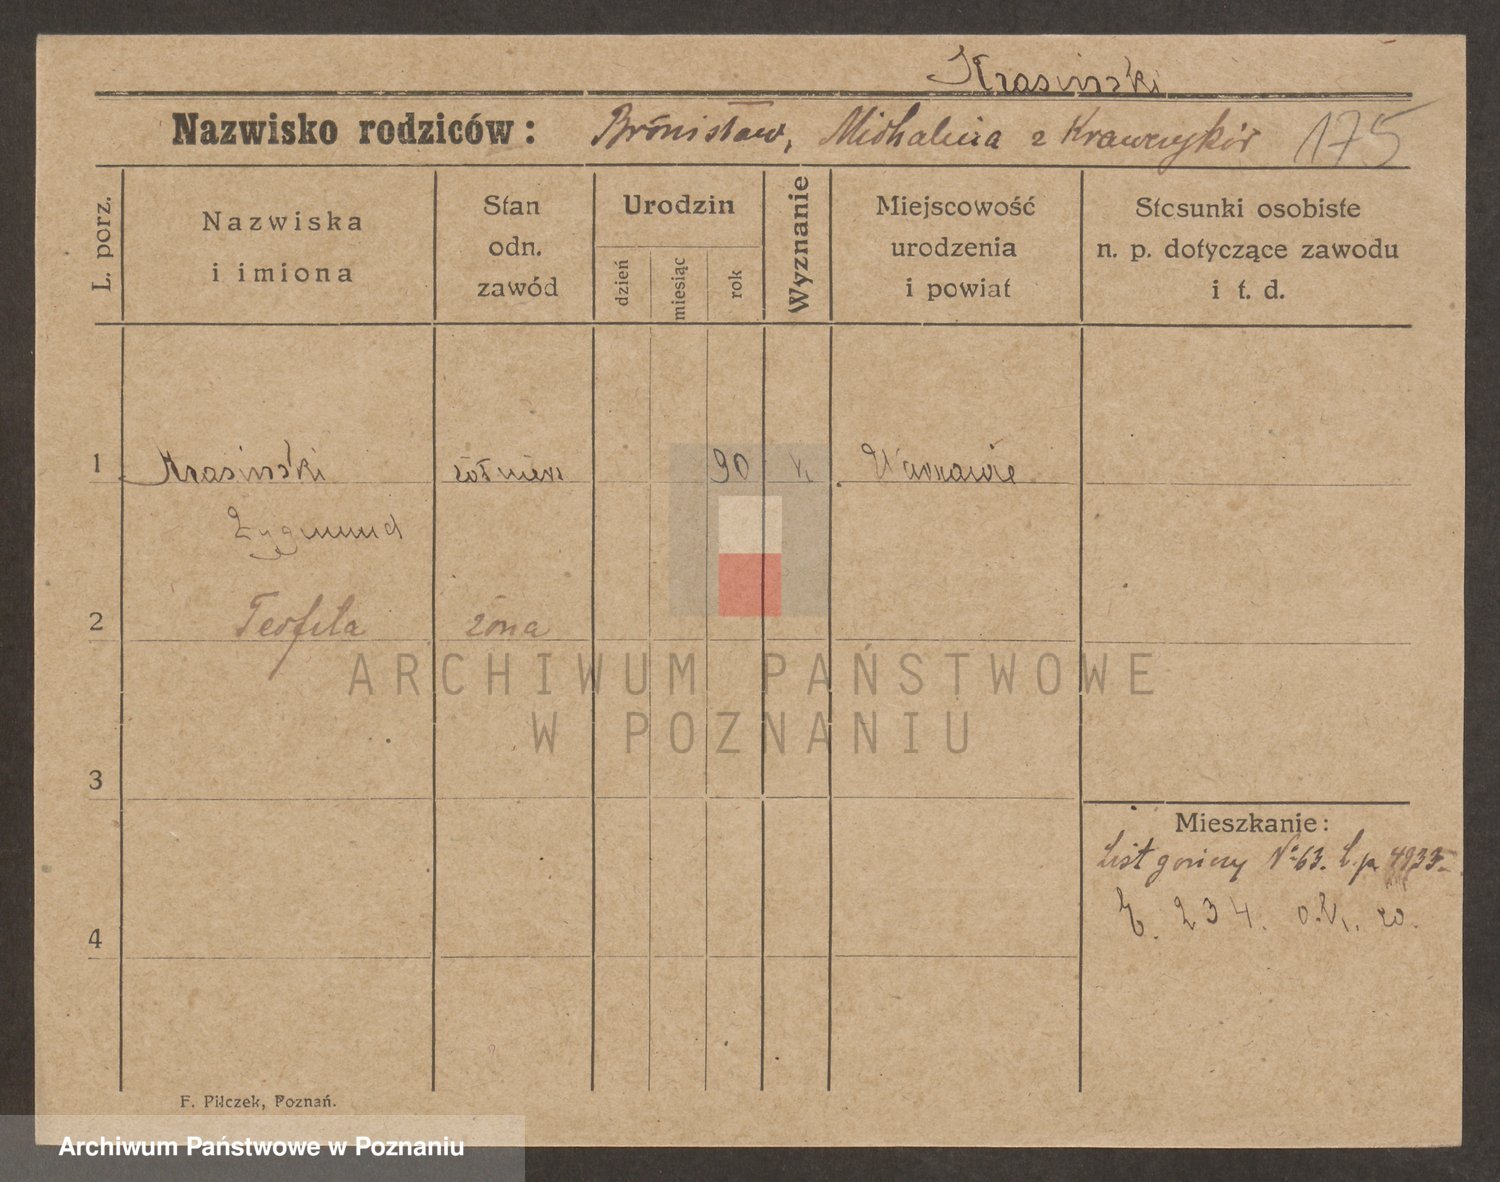 Krasiński
Nazwisko rodziców: Bronisław, Michalina z Krawczyków 175
L. porz.
Nazwiska
i imiona
Stan
odn.
zawód
Urodzin
dzień
miesiąc
rok
Wyznanie
Miejscowość
urodzenia
i powiat
Stosunki osobiste
n. p. dotyczące zawodu
i t. d.
1 Krasiński żołnierz 90 k
Zygmund
2 Teofila żona
ARCHIWUM PAŃSTWOWE
W POZNANIU
3
Mieszkanie:
List gończy № 63. L.p. 4933
4
E. 234. 20.
F. Pilczek, Poznań.
Archiwum Państwowe w Poznaniu